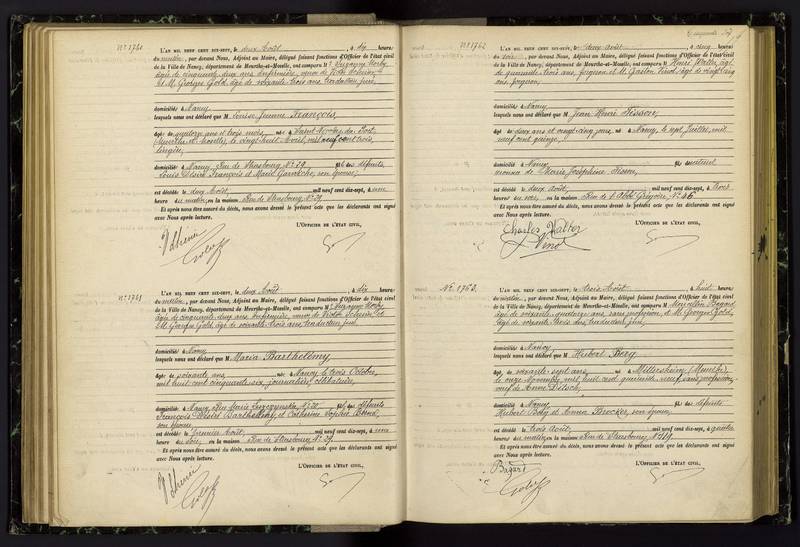 N° 1760
L'AN MIL NEUF CENT DIX-SEPT, le deux Août, à dix heures
du matin, par devant Nous, Adjoint au Maire, délégué faisant fonctions d'Officier de l'état civil
de la Ville de Nancy, département de Meurthe-et-Moselle, ont comparu M Suzanne
âgée de cinquante deux ans, infirmière, veuve de Victor
et M. Georges Gold, âgé de soixante trois ans,
domiciliés à Nancy
lesquels nous ont déclaré que M Louise Jeanne François,
âgée de quatorze ans et trois mois, née à Saint-Nicolas du Port
(Meurthe et Moselle), le vingt huit Avril, mil neuf cent trois,
lingère,
domiciliée à Nancy, Rue de Strasbourg N° 79 fille des défunts
Louis Désiré François et Marie son épouse,
est décédée le deux Août, mil neuf cent dix-sept, à une
heure du matin, en la maison Rue de Strasbourg N° 79.
Et après nous être assuré du décès, nous avons dressé le présent acte que les déclarants ont signé
avec Nous après lecture.
L'OFFICIER DE L'ÉTAT CIVIL,
N° 1761
L'AN MIL NEUF CENT DIX-SEPT, le deux Août, à dix heures
du matin, par devant Nous, Adjoint au Maire, délégué faisant fonctions d'Officier de l'état civil
de la Ville de Nancy, département de Meurthe-et-Moselle, ont comparu M Suzanne
âgée de cinquante deux ans, infirmière, veuve de Victor et
M. Georges Gold, âgé de soixante trois ans,
domiciliés à Nancy
lesquels nous ont déclaré que M Marie Barthélémy
âgée de soixante ans, née à Nancy le trois Octobre,
mil huit cent cinquante six, journalière, célibataire,
domiciliée à Nancy, Rue Marie Leszczynska, N° fille des défunts
François Barthélémy, et Catherine Sophie
son épouse,
est décédée le premier Août, mil neuf cent dix-sept, à une
heure du soir, en la maison Rue de Strasbourg, N° 79.
Et après nous être assuré du décès, nous avons dressé le présent acte que les déclarants ont signé
avec Nous après lecture.
L'OFFICIER DE L'ÉTAT CIVIL,
N° 1762
L'AN MIL NEUF CENT DIX-SEPT, le deux Août, à cinq heures
du soir, par devant Nous, Adjoint au Maire, délégué faisant fonctions d'Officier de l'état civil
de la Ville de Nancy, département de Meurthe-et-Moselle, ont comparu M Walter, âgé
de quarante trois ans, forgeron et M. Gaston Vinot, âgé de vingt cinq
ans, forgeron,
domiciliés à Nancy
lesquels nous ont déclaré que M Jean Henri Fisson,
âgé de deux ans et vingt cinq jours, né à Nancy, le sept Juillet, mil
neuf cent quinze,
domicilié à Nancy fils naturel
reconnu de Marie Joséphine Fisson,
est décédé le deux Août, mil neuf cent dix-sept, à trois
heures du soir, en la maison Rue de l'Abbé Grégoire, N° 46
Et après nous être assuré du décès, nous avons dressé le présent acte que les déclarants ont signé
avec Nous après lecture.
L'OFFICIER DE L'ÉTAT CIVIL,
Charles Walter
Vinot
N° 1763
L'AN MIL NEUF CENT DIX-SEPT, le trois Août, à huit heures
du matin, par devant Nous, Adjoint au Maire, délégué faisant fonctions d'Officier de l'état civil
de la Ville de Nancy, département de Meurthe-et-Moselle, ont comparu M Marcellin Bagard
âgé de soixante quatorze ans, sans profession, et M. Georges Gold,
âgé de soixante trois ans,
domiciliés à Nancy
lesquels nous ont déclaré que M Hubert Bog
âgé de soixante sept ans, né à Mittersheim
le onze Novembre, mil huit cent quarante neuf, sans profession,
veuf de Anne
domicilié à Nancy fils des défunts
Hubert Bog et Anna son épouse,
est décédé le trois Août, mil neuf cent dix-sept, à quatre
heures du matin, en la maison Rue de Strasbourg, N°
Et après nous être assuré du décès, nous avons dressé le présent acte que les déclarants ont signé
avec Nous après lecture.
L'OFFICIER DE L'ÉTAT CIVIL,
Bagard